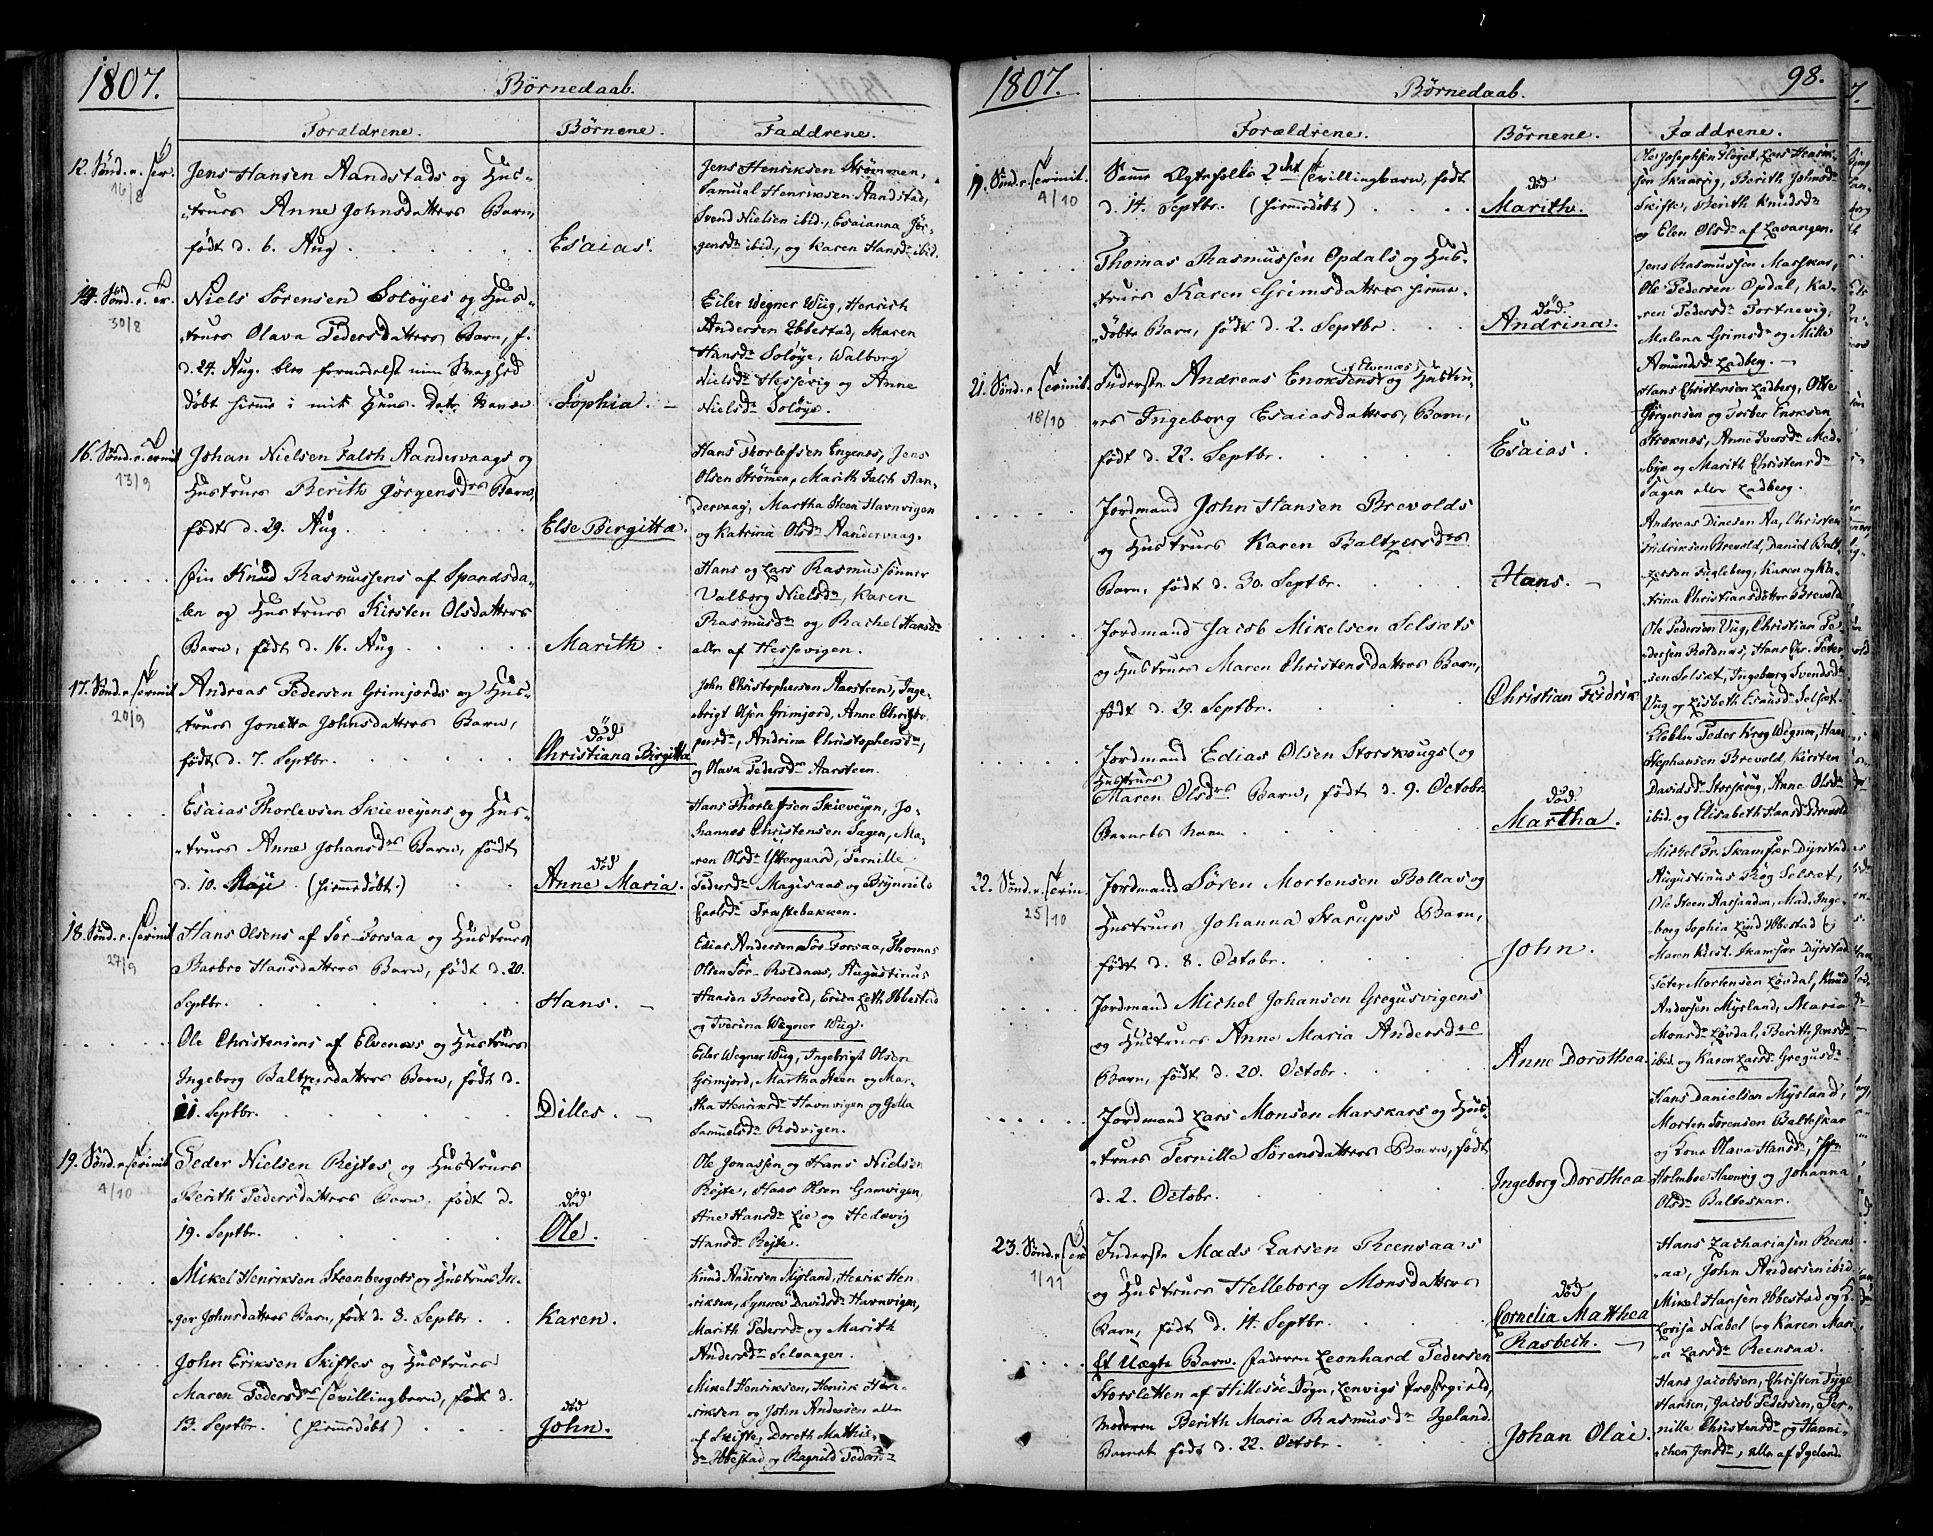 1807.
Børnedaab.
Forældrene. Børnene. Faddrene.
12. Sønd. e. Tr.
16/8
Jens Hansen Aandstads og Hus-
trues Anne Johnsdatters Barn,
født d. 6. Aug.
Esaias.
Jens Henriksen Strømmen,
Samuel Henriksen Aandstad,
Svend Nielsen ibid., Esaianna Jør-
gensdr ibid., og Karen Hansdr ibid.
14. Sønd. e. Tr.
30/8
Niels Sørensen Soløyes og Hus-
trues Olava Pedersdatters Barn, f.
d. 24. Aug. blev formedelst min Svaghed
døbt hiemme i mit Huus. Dets Navn
Sophia.
Eiler Wegner Wüg, Henrich
Andersen Ebbestad, Maren
Hansdr Soløye, Walborg
Nielsdr Hessevig og Anne
Nielsdr Soløye.
16. Sønd. e. Trinit
13/9
Johan Nielsen Falch Aandervaags og
Hustrues Berith Jørgensdrs Barn,
født d. 29. Aug.
Else Birgitta.
Hans Thorlefsen Engenes, Jens
Olsen Strømen, Marith Falch Aan-
dervaag, Martha Steen Havnvigen
og Katrina Olsdr Aandervaag.
Finn Knud Rasmussens af Spandsda-
len og Hustrues Kirsten Olsdatters
Barn, født d. 16. Aug
Marith.
Hans og Lars Rasmussønner
Valborg Nielsdr, Karen
Rasmusdr og Rachel Hansdr
alle af Hessevigen.
17. Sønd. e. Trinit
20/9
Andreas Pedersen Grimjords og Hus-
trues Jonetta Johnsdatters Barn,
født d. 7. Septbr.
død
Christiana Birgitta
John Christophersen Aarsteen, Inge-
brigt Olsen Grimjord, Anne Christo-
persdr, Andrina Christophersdr,
og Olava Pedersdr Aarsteen.
Esaias Thorlevsen Skieveyens og Hus-
trues Anne Johansdrs Barn, født
d. 10. Maji. (hiemmedøbt.)
død
Anne Maria.
Hans Thorlefsen Skieveyn, Jo-
hannes Christensen Sagen, Ma-
ren Olsdr Yttergaard, Pernille
Pedersdr Magisaas og Brynnild
Carlsdr Træstebakken.
18. Sønd. e. Trinit
27/9
Hans Olsens af Sør-Forsaa og Hustrues
Barbro Hansdatters Barn, født d. 20.
Septbr.
Hans.
Edias Andersen Sør Forsaa, Thomas
Olsen Sør-Roldnæs, Augustinus
Hansen Brevold, Erica Leth Ibbestad
og Iverina Wegner Wüg.
Ole Christensens af Elvenæs og Hustrues
Ingeborg Baltzersdatters Barn, født d.
11. Septbr.
Dilles.
Eiler Wegner Wüg, Ingebrigt Olsen
Grimjord, Martha Steen og Mar-
tha Henriksdr Havnvigen og Gjella
Samuelsdr Rodvigen.
19. Sønd. e. Trinit
4/10
Peder Nielsen Røjtes og Hustrues
Berith Pedersdatters Barn, født d.
19. Septbr.
død
Ole.
Ole Jonassen og Hans Nielsen
Røjte, Hans Olsen Gamvigen,
Ane Hansdr Lie og Hedevig
Hansdr Rejte.
Mikel Henriksen Steenbergets og Hustrues In-
ger Johnsdatters Barn, født d. 8. Septbr.
Karen.
Knud Andersen Mysland, Henrik Hen-
riksen, Synnev Davidsdr Havnvigen,
Marith Pedersdr og Marith
Andersdr Selvaagen.
John Eriksen Skiftes og Hustrues
Maren Pedersdrs Tvillingbarn, født d.
13. Septbr. (hiemmedøbt)
død
John.
Mikel Henriksen, Henrik Hen-
riksen og John Andersen alle
af Skifte, Doreth Mathis-
dr Ibbestad og Ragnild Pedersdr
1807.
Børnedaab.
98.
Forældrene. Børnene. Faddrene.
19. Sønd. e. Trinit.
4/10
Samme Ægtefolks 2det Tvillingbarn, født
d. 14. Septbr. (hiemmedøbt)
død
Marith.
Ole Josephsen Fløget, Lars Henrik-
sen Skaarvig, Berith Johnsdr
Skifte, Berith Knudsdr
og Elen Olsdr af Lavangen.
Thomas Rasmussen Opdals og Hus-
trues Karen Grimsdatters hiemme-
døbte Barn, født d. 2. Septbr
død.
Andrina.
Jens Rasmussen Marskar,
Ole Pedersen Opdal, Ka-
ren Pedersdr Tortnevig,
Malena Grimsdr og Mille
Amundsdr Ladberg.
21. Sønd. e. Trinit.
18/10
Inderste Andreas Enoksens af Elvenæs og Hustru-
es Ingeborg Esaiasdatters, Barn,
født d. 22. Septbr.
Esaias.
Hans Christensen Ladberg, Otte
Jørgensen og Torber Enoksen
Strøknæs, Anne Iversdr Med-
bye og Marith Christensdr
Sagen eller Ladberg.
Jordmand John Hansen Brevolds
og Hustrues Karen Baltzersdrs
Barn, født d. 30. Septbr.
Hans.
Andreas Dinesen Aa, Christen
Fridriksen Brevold, Daniel Balt-
zersen Fugleberg, Karen og Ka-
trina Christiansdøttre Brevold
Jordmand Jacob Mikelsen Selsets
og Hustrues Maren Christensdatters Barn,
født d. 29. Septbr.
Christian Fridrik
Ole Pedersen Vüg, Christian Pe-
dersen Roldnæs, Hans Chr. Peter-
sen Selset, Ingeborg Svendsdr
Vüg og Lisbeth Erausdr Selset.
Jordmand Edias Olsen Storskougs og
Hustrues
Maren Olsdrs Barn, født d. 9. Octobr
Barnets Navn
død.
Martha.
Peder Krog Wegner, Hans
Stephansen Brevold, Kirsten
Davidsdr Storskoug, Anne Olsdr
ibid. og Elisabeth Hansdr Brevold
22. Sønd. e. Trin.
25/10
Jordmand Søren Mortensen Bollas og
Hustrues Johanna Starups Barn,
født d. 8. Octobr.
John.
Michel Fr. Skamfær Dyrstad
Augustinus Røg Selset,
Ole Steen Aarsanden, Mad. Inge-
borg Sophia Lind Ibbestad og
Maren Kirst. Skamfær Dyrstad
Jordmand Michel Johansen Gregusvigens
og Hustrues Anne Maria Andersdrs
Barn, født d. 20. Octobr.
Anne Dorothea.
Peter Mortensen Løvdal, Knud
Andersen Mysland, Maria
Monsdr Løvdal, Berith Jensdr
ibid. og Karen Larsdr Gregusdr
Jordmand Lars Monsen Marskars og Hus-
trues Pernille Sørensdatters Barn, født
d. 2. Octobr.
Ingeborg Dorothea
Hans Danielsen Mysland,
Morten Sørensen Balteskar
og Kone Olava Hansdr,
Holmboe Havnvig og Johanna
Olsdr Balteskar.
23. Sønd. e. Trin
1/11
Inderste Mads Larsen Reensaa's
og Hustrues Helleborg Monsdatters
Barn, født d. 14. Septbr.
død
Cornelia Matthea
Rasbech.
Hans Zachariasen Reens-
aa, John Andersen ibid
Mikel Hansen Ibbestad og
Lovisa Næbel og Karen Mari-
a Larsdr Reensaa.
Et Uægte Barn. Faderen Leonhard Pedersen
Storsletten af Hillesøe Sogn, Lenvigs Præstegield,
Moderen Berith Maria Rasmusdr Igeland.
Barnet født d. 22. Octobr.
Johan Olai.
Hans Jacobsen, Christen Tyge
Hansen, Jacob Pedersen, Per-
nille Christensdr og Hanni-
chen Jensdr, alle af Igeland.